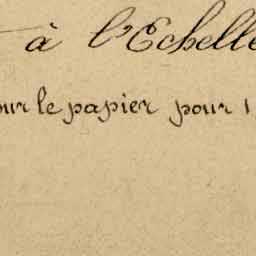 à l'Echelle
our le papier pour 1